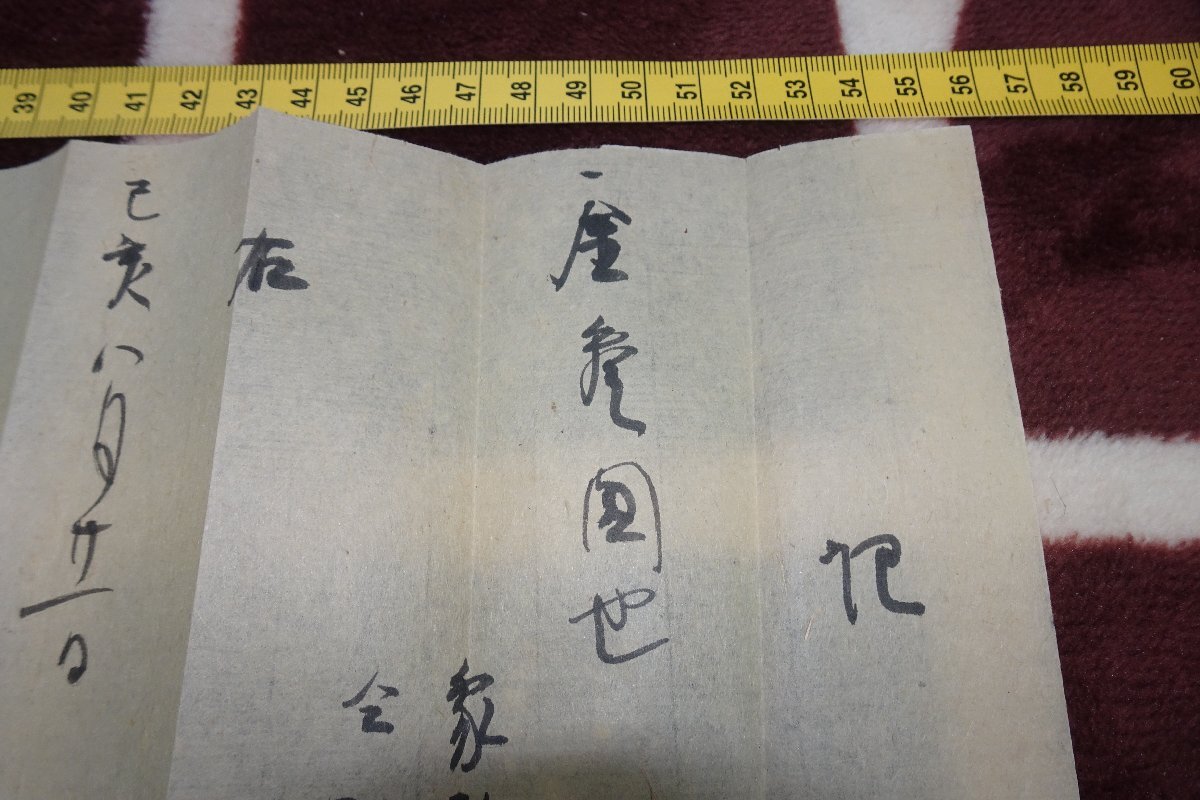 記
一金参圓也
象
会
右
己亥八月廿一日
39 40 41 42 43 44 45 46 47 48 49 50 51 52 53 54 55 56 57 58 59 60